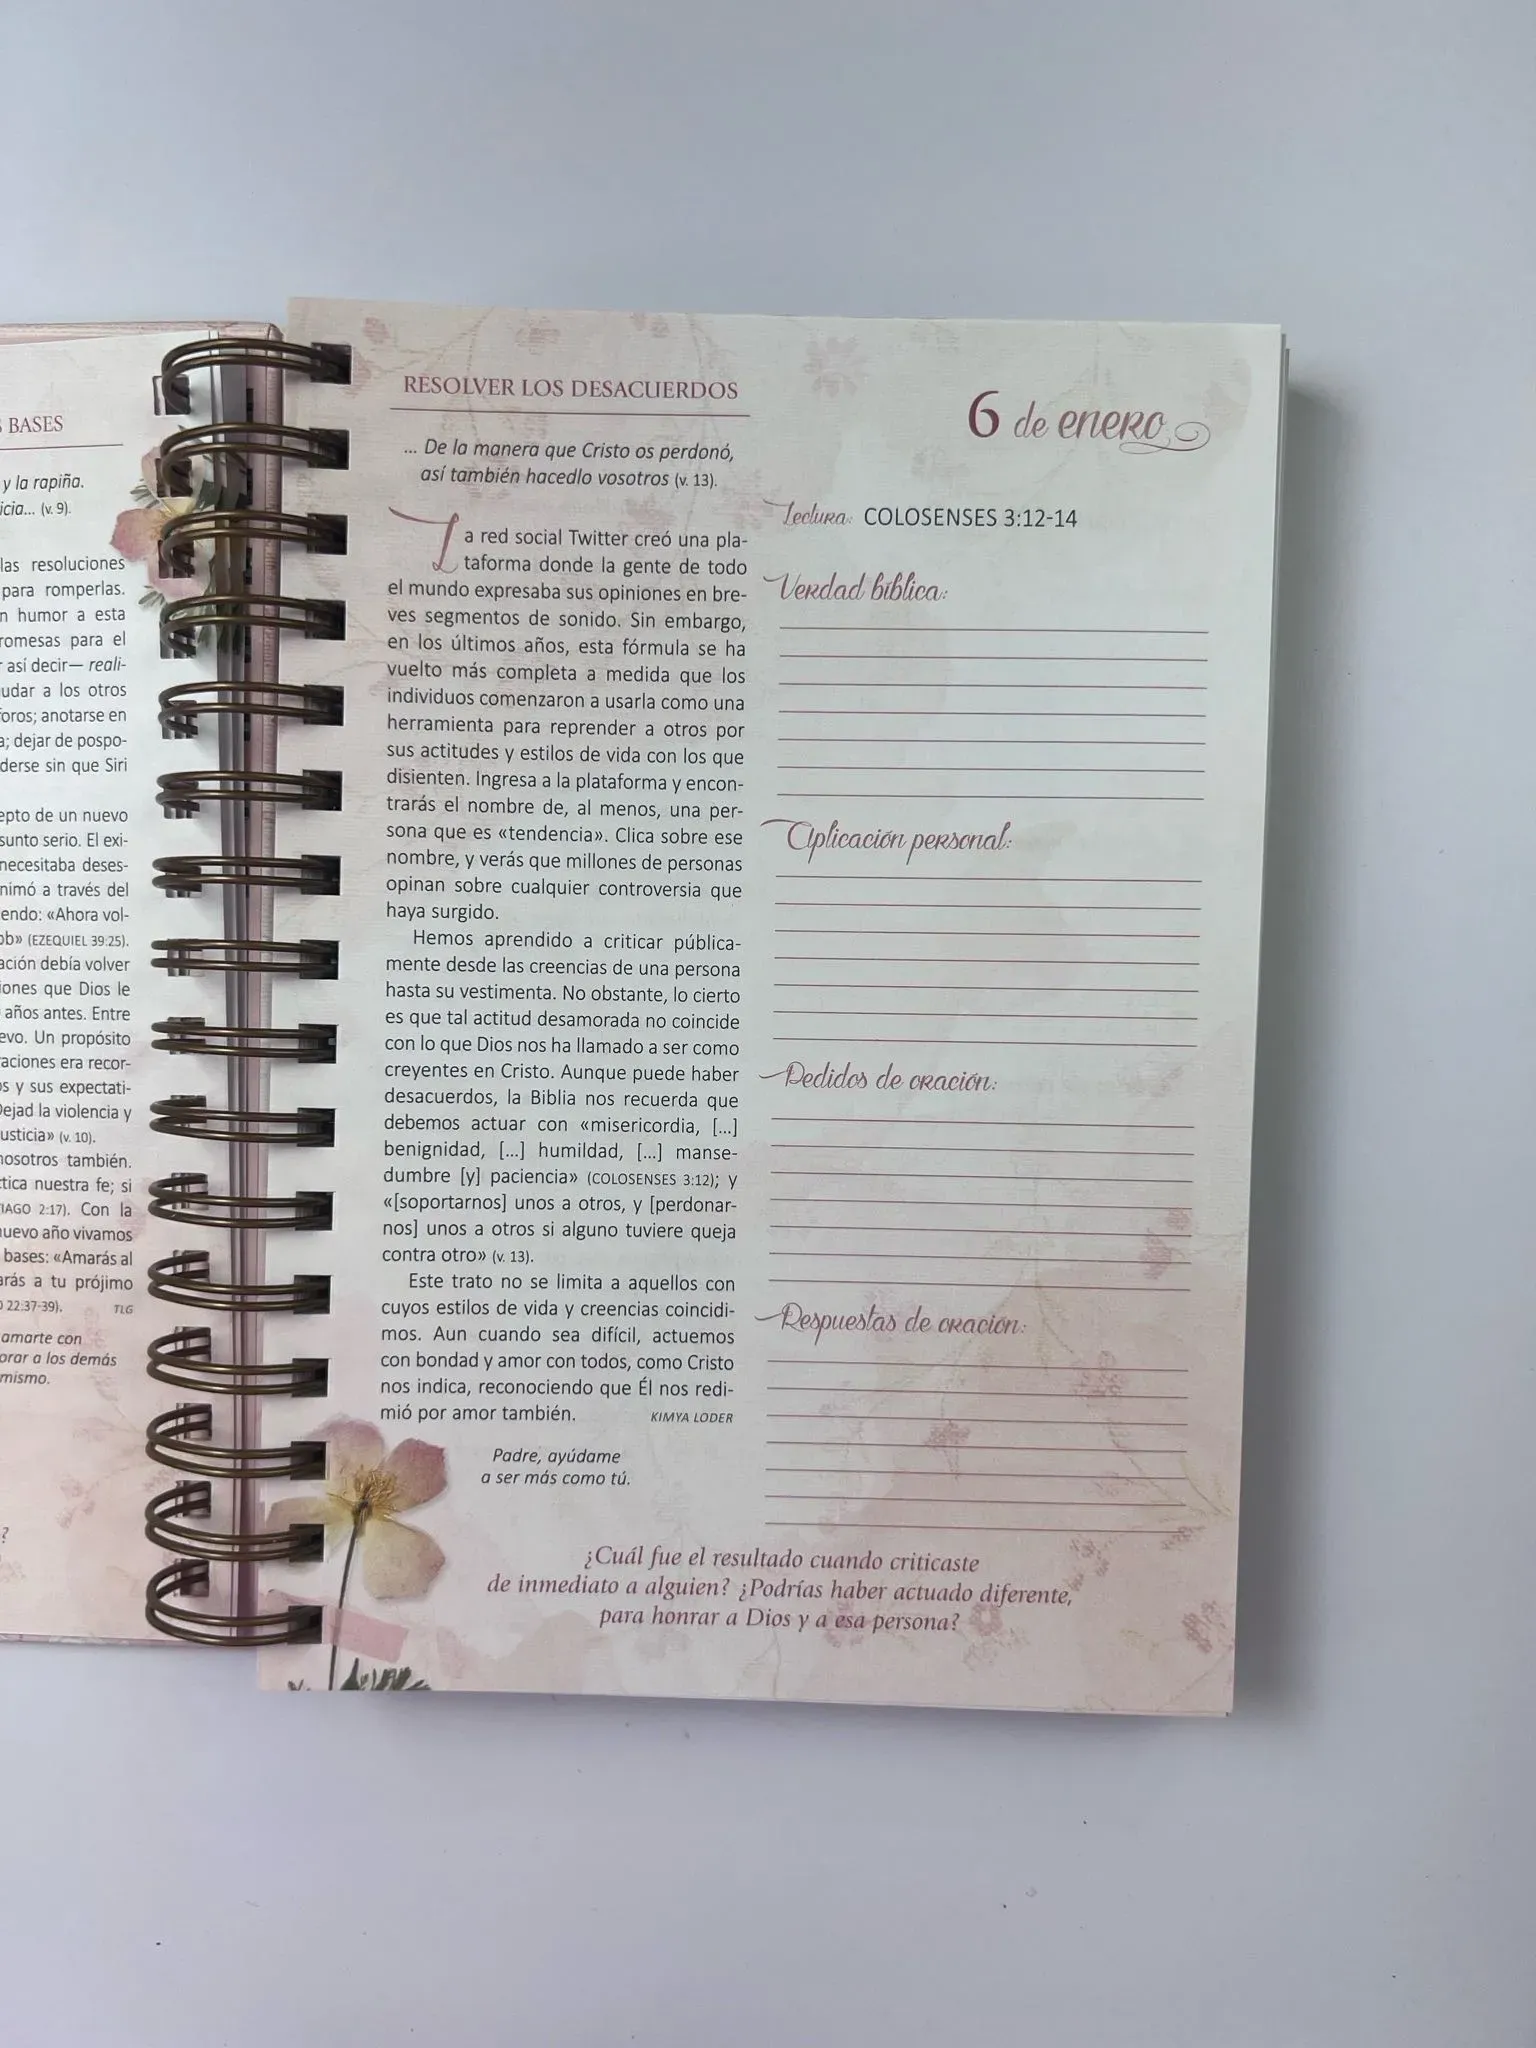 S BASES
y la rapiña.
icia... (v. 9).
las resoluciones
para romperlas.
n humor a esta
romesas para el
r así decir— reali-
udar a los otros
foros; anotarse en
a; dejar de pospo-
derse sin que Siri
epto de un nuevo
sunto serio. El exi-
necesitaba deses-
nimó a través del
endo: «Ahora vol-
ob» (EZEQUIEL 39:25).
ación debía volver
iones que Dios le
años antes. Entre
evo. Un propósito
raciones era recor-
os y sus expectati-
Dejad la violencia y
usticia» (v. 10).
nosotros también.
ctica nuestra fe; si
TIAGO 2:17). Con la
nuevo año vivamos
bases: «Amarás al
arás a tu prójimo
O 22:37-39). TLG
amarte con
orar a los demás
mismo.
?
RESOLVER LOS DESACUERDOS
... De la manera que Cristo os perdonó,
así también hacedlo vosotros (v. 13).
La red social Twitter creó una pla-
taforma donde la gente de todo
el mundo expresaba sus opiniones en bre-
ves segmentos de sonido. Sin embargo,
en los últimos años, esta fórmula se ha
vuelto más completa a medida que los
individuos comenzaron a usarla como una
herramienta para reprender a otros por
sus actitudes y estilos de vida con los que
disienten. Ingresa a la plataforma y encon-
trarás el nombre de, al menos, una per-
sona que es «tendencia». Clica sobre ese
nombre, y verás que millones de personas
opinan sobre cualquier controversia que
haya surgido.
Hemos aprendido a criticar pública-
mente desde las creencias de una persona
hasta su vestimenta. No obstante, lo cierto
es que tal actitud desamorada no coincide
con lo que Dios nos ha llamado a ser como
creyentes en Cristo. Aunque puede haber
desacuerdos, la Biblia nos recuerda que
debemos actuar con «misericordia, [...]
benignidad, [...] humildad, [...] manse-
dumbre [y] paciencia» (COLOSENSES 3:12); y
«[soportarnos] unos a otros, y [perdonar-
nos] unos a otros si alguno tuviere queja
contra otro» (v. 13).
Este trato no se limita a aquellos con
cuyos estilos de vida y creencias coincidi-
mos. Aun cuando sea difícil, actuemos
con bondad y amor con todos, como Cristo
nos indica, reconociendo que Él nos redi-
mió por amor también. KIMYA LODER
Padre, ayúdame
a ser más como tú.
6 de enero
Lectura: COLOSENSES 3:12-14
Verdad bíblica:
Aplicación personal:
Pedidos de oración:
Respuestas de oración:
¿Cuál fue el resultado cuando criticaste
de inmediato a alguien? ¿Podrías haber actuado diferente,
para honrar a Dios y a esa persona?